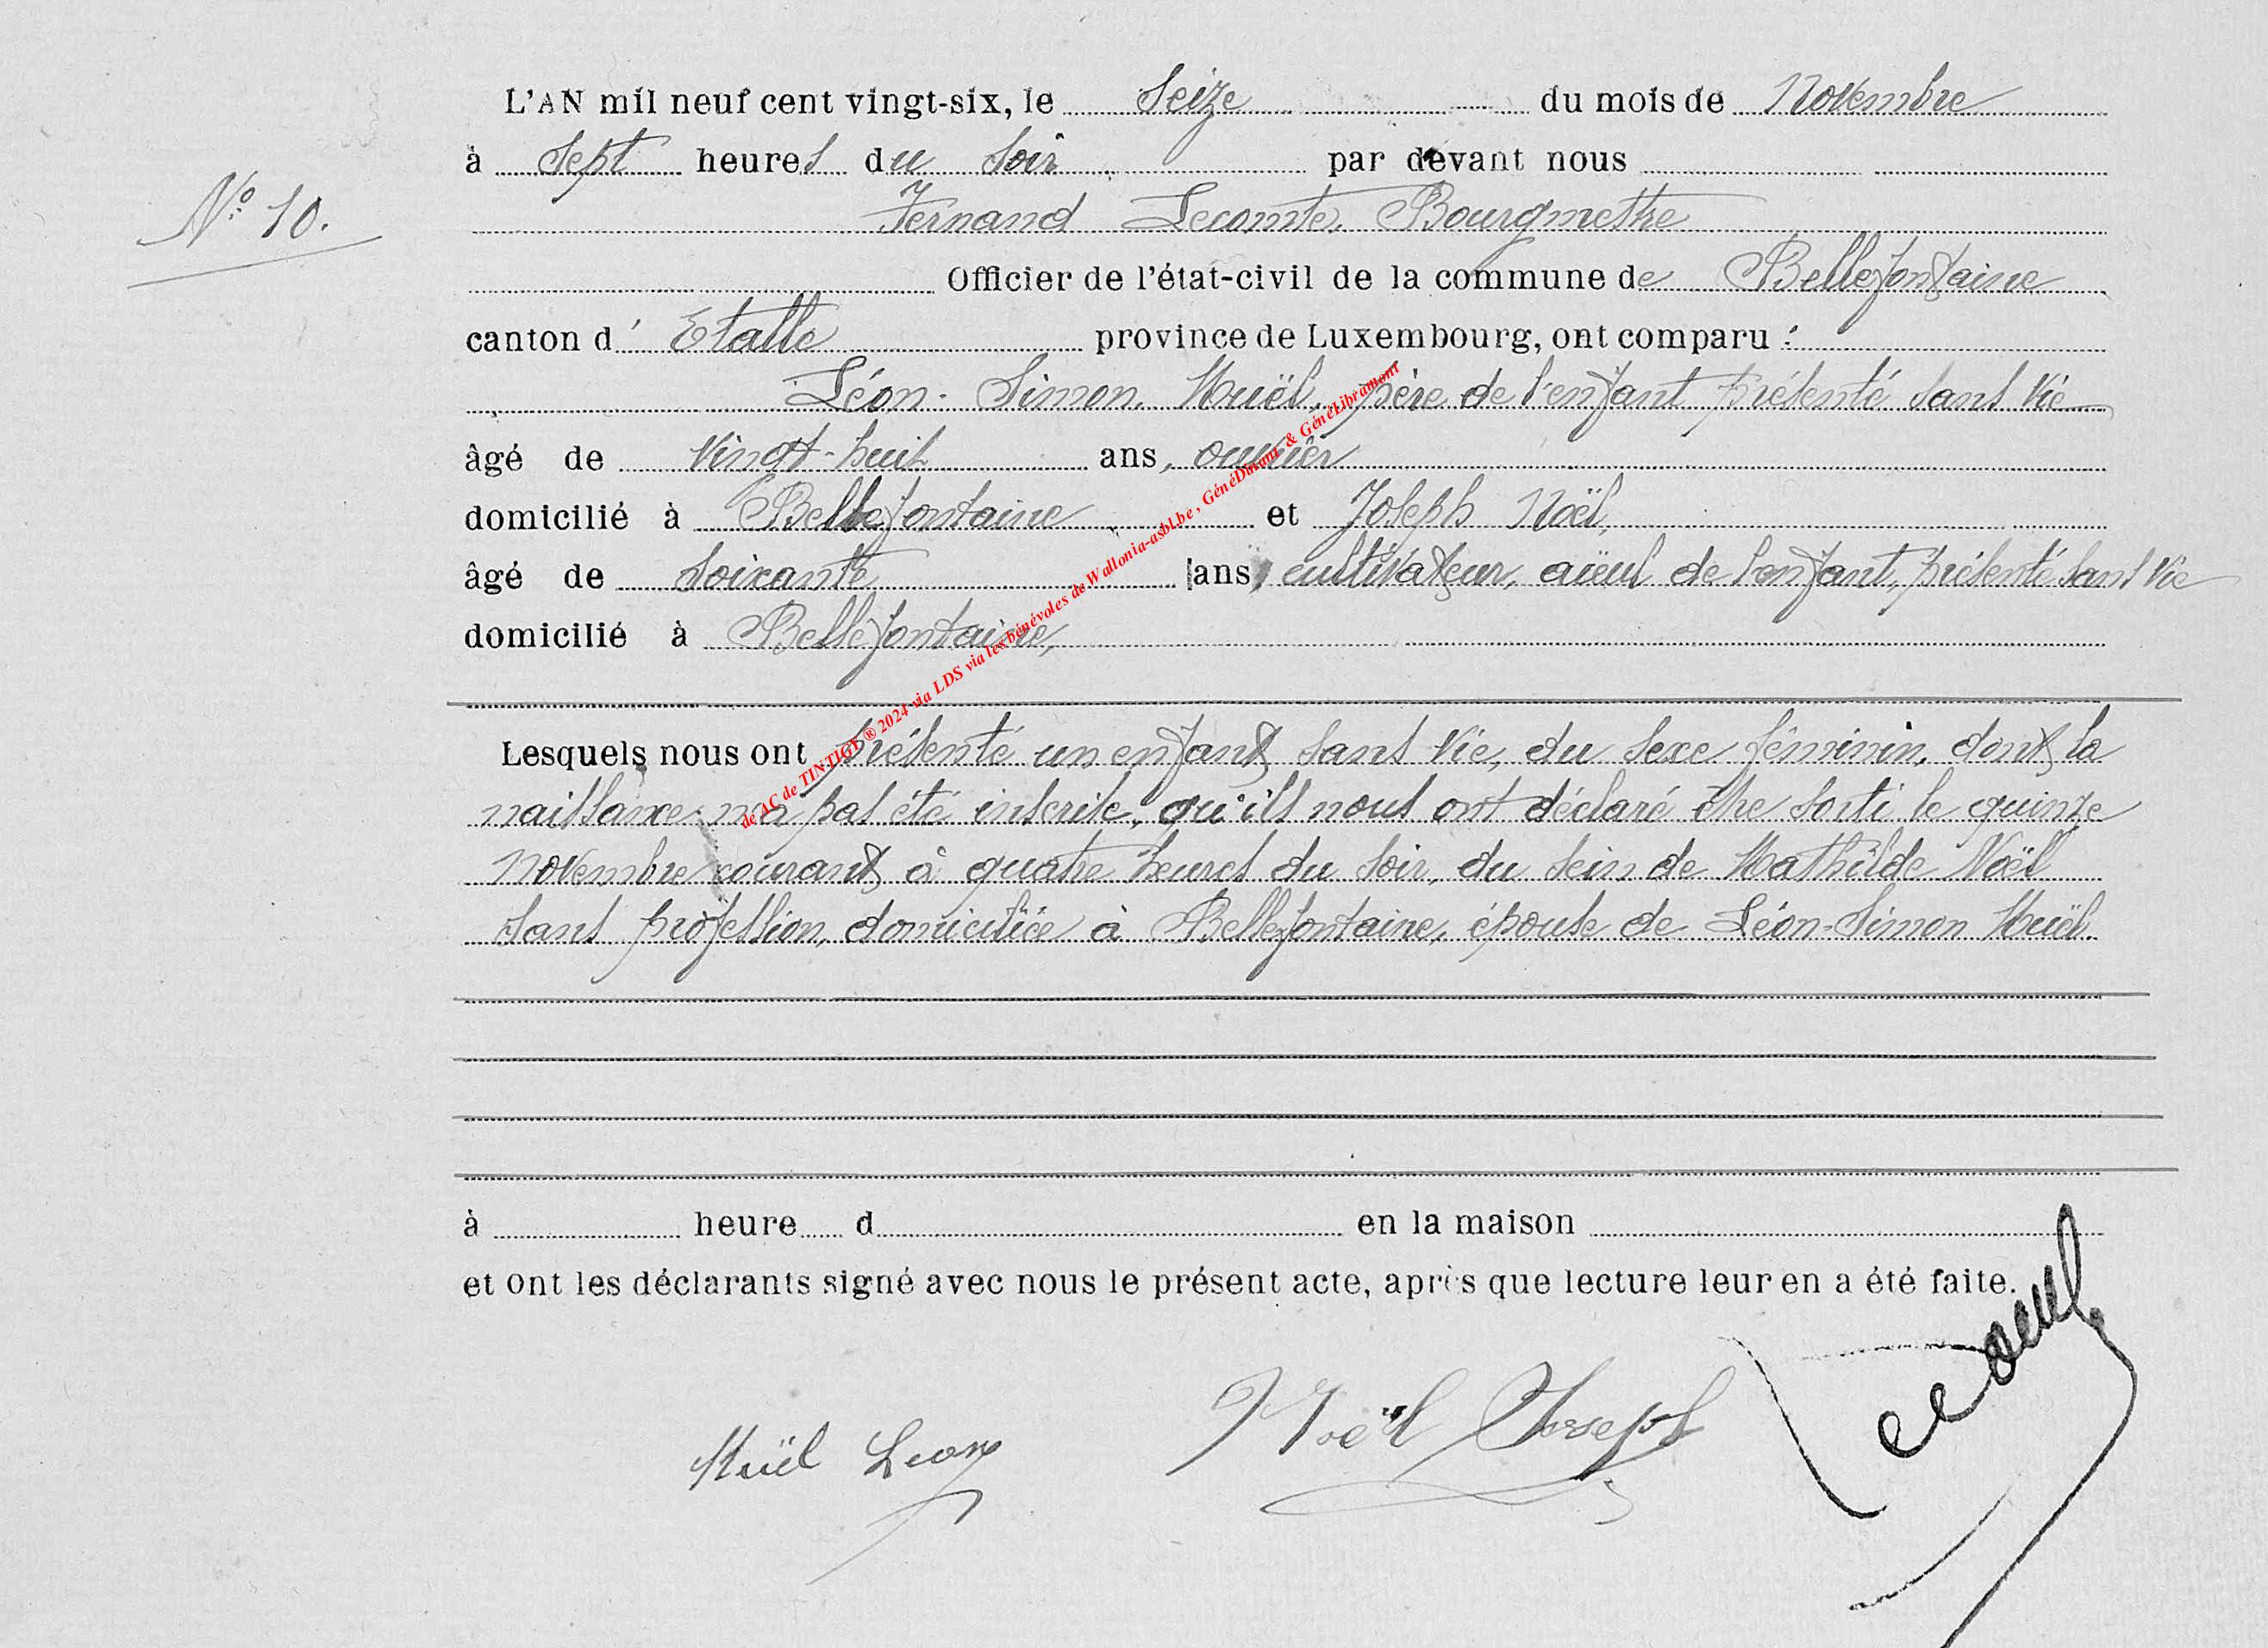 L'AN mil neuf cent vingt-six, le Seize du mois de Novembre
à Sept heures du Soir par devant nous
N° 10.
Fernand Lecomte, Bourgmestre
Officier de l'état-civil de la commune de Bellefontaine
canton d' Etalle province de Luxembourg, ont comparu :
Léon-Simon Muël, père de l'enfant présenté sans vie
âgé de vingt-huit ans, ouvrier
domicilié à Bellefontaine, et Joseph Noël,
âgé de soixante ans, cultivateur, aïeul de l'enfant, présenté sans vie
domicilié à Bellefontaine,
Lesquels nous ont présenté un enfant sans vie, du sexe féminin, dont la
naissance n'a pas été inscrite, qu'ils nous ont déclaré être sorti le quinze
novembre courant à quatre heures du soir, du sein de Mathilde Noël
sans profession, domiciliée à Bellefontaine, épouse de Léon-Simon Muël.
à heure d en la maison
et ont les déclarants signé avec nous le présent acte, après que lecture leur en a été faite.
Muël Leon
Noël Joseph
de AC de TINTIGE ® 2024 via LDS via les bénévoles de Wallonia-asbl.be , GénéDinant & GénéLibramont